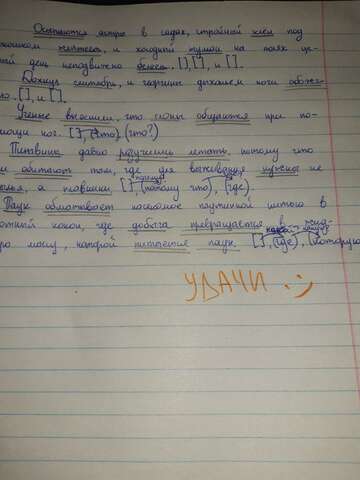 Осыпаются астры в садах, стройный клен под
окошком желтеет, и холодный туман на полях це-
лый день неподвижно белеет. [ ], [ ], и [ ].
Дохнул сентябрь, и георгины дыханьем ночи обожг-
ло. [ ], и [ ].
Ученые выяснили, что слоны общаются при по-
мощи ног. [ ], (что) (что?)
Пингвины давно разучились летать, потому что
обитают там, где для выживания нужны не
крылья, а плавники [ ], (потому что), (где).
Паук обматывает насекомое паутиной плотно в
кокон, где добыча превращается в жид-
массу, которой питается паук. [ ], (где), (которую
УДАЧИ :)